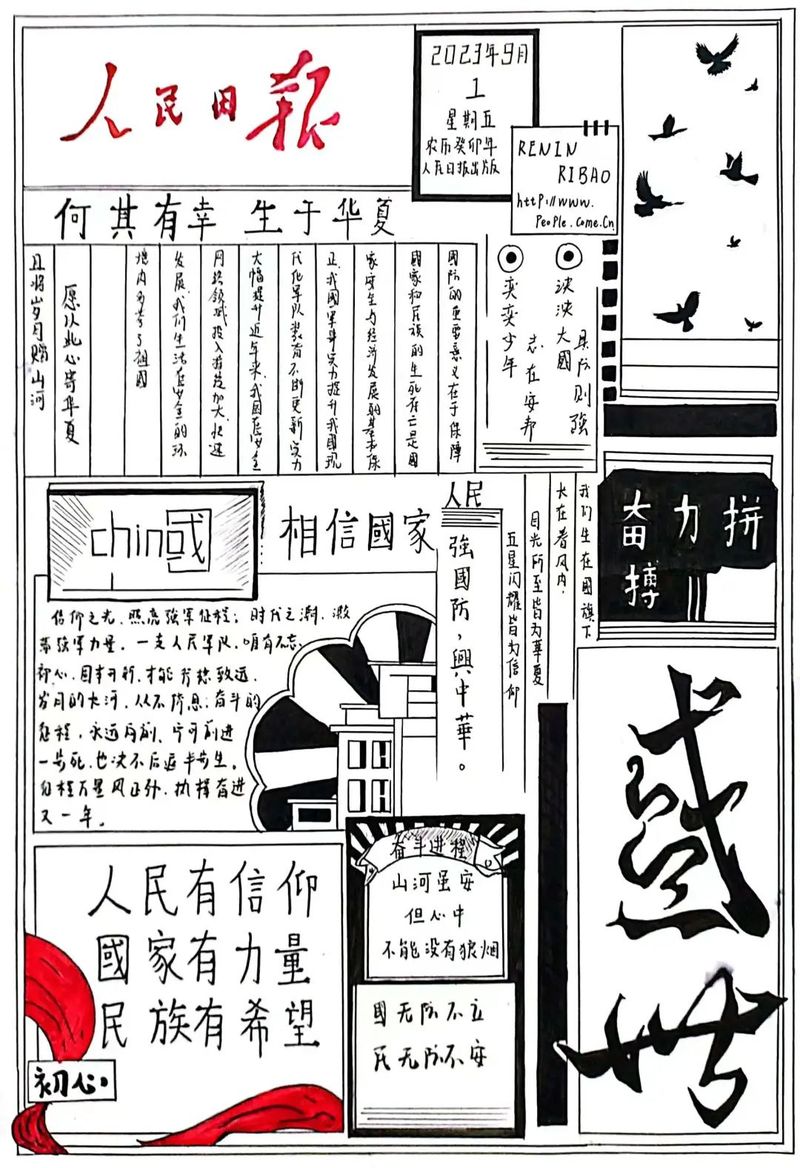 人民日报
2023年9月
1
星期五
农历癸卯年
人民日报出版
RENIN
RIBAO
http://www.
People.Come.Cn
何其有幸 生于华夏
国防的重要意义在于保障
國家和民族的生死存亡是國
家安全与经济发展的基本保
正.我國军事实力提升我國现
代化军队装备不断更新实力
大幅提升近年来.我国在安全
网络领域投入
发展.我们生活在安全的环
境内
愿以此心寄华夏
且将岁月赠山河
泱泱大國
奕奕少年
志在安邦
則強
chin國
相信國家
信仰之光,照亮強军征程;时代之潮,激
荡強军力量。一支人民军队,唯有不忘
初心,
才能行稳致远。
岁月的大河,从不停息;奋斗的
征程,永远向前。宁可前进
一步死,也决不后退半步生。
又一年。
人民
強國防,興中華。
我们生在國旗下
长在春风内.
目光所至皆为華夏
五星闪耀皆为信仰
奋力拼
搏
人民有信仰
國家有力量
民族有希望
初心。
奋斗进程
山河虽安
但心中
不能没有狼烟
國无防不立
民无防不安
盛世